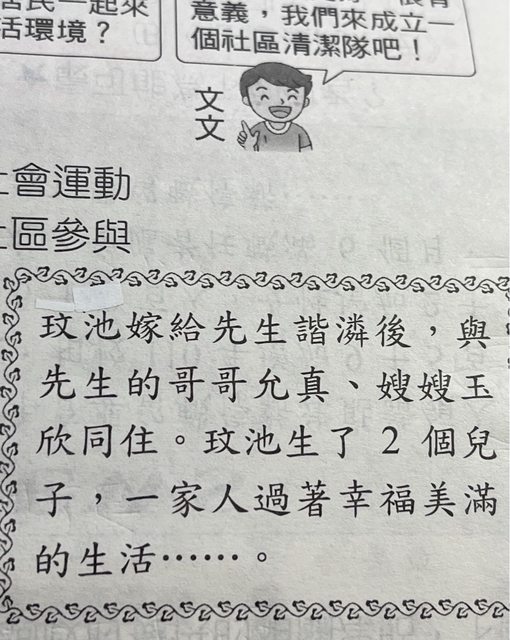 居民一起來
活環境？
意義，我們來成立一
個社區清潔隊吧！
文文
會運動
區參與
玟池嫁給先生諧潾後，與
先生的哥哥允真、嫂嫂玉
欣同住。玟池生了 2 個兒
子，一家人過著幸福美滿
的生活……。